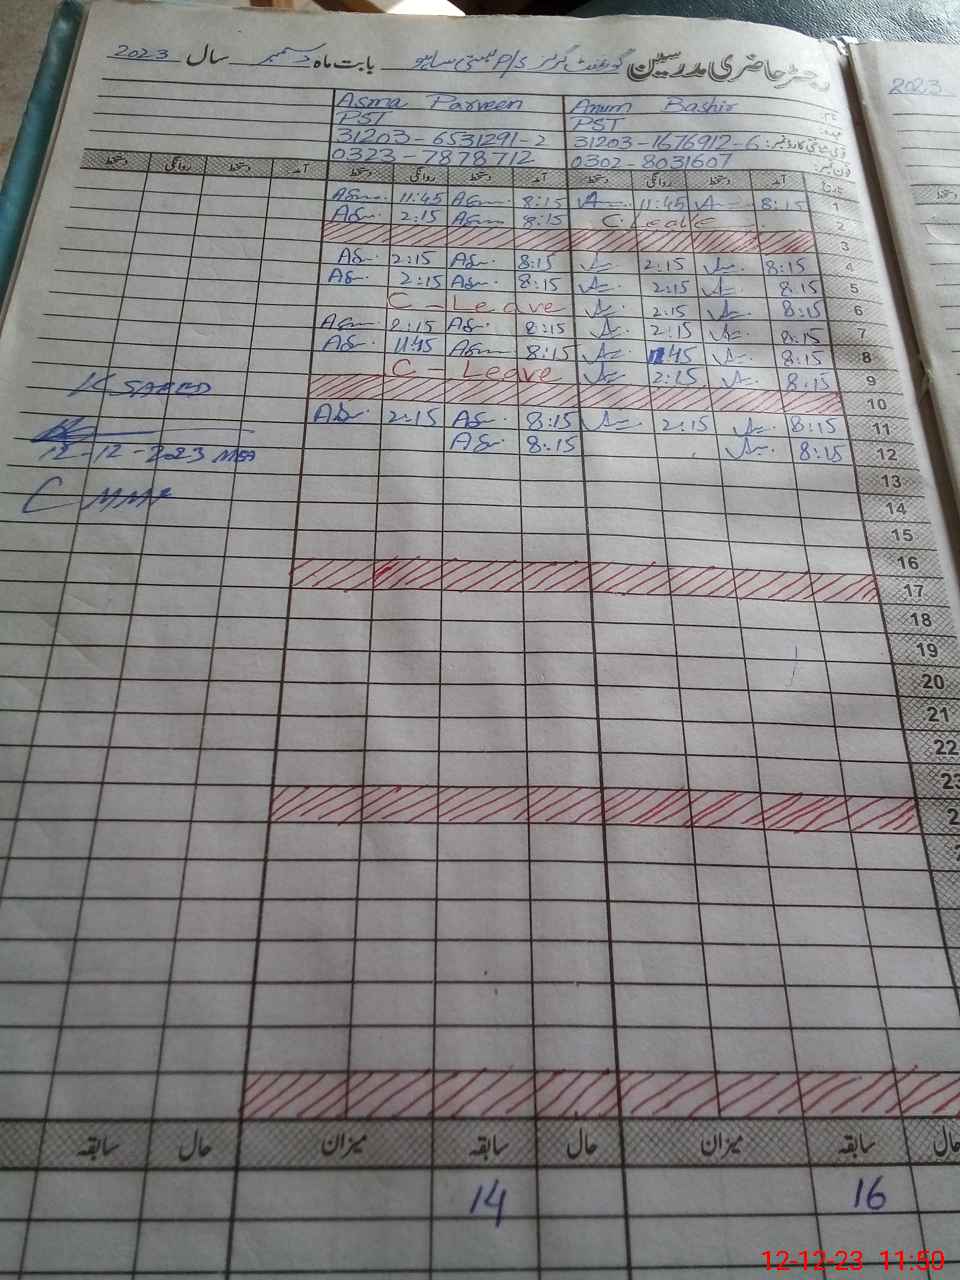 رجسٹر حاضری مدرسین گورنمنٹ گرلز P/S بستی بابت ماہ دسمبر سال 2023
2023
Asma Parveen Anum Bashir
PST PST
31203-6531291-2 31203-1676912-6
0323-7878712 0302-8031607
دستخط روانگی دستخط آمد دستخط روانگی دستخط آمد دستخط روانگی دستخط آمد تاریخ
Asm 11:45 Asm 8:15 11:45 8:15 1
As 2:15 Asm 8:15 C. Leave 2
3
As 2:15 As 8:15 2:15 8:15 4
As 2:15 As 8:15 2:15 8:15 5
C - Leave 2:15 8:15 6
As 2:15 As 8:15 2:15 8:15 7
As 11:45 Asm 8:15 11:45 8:15 8
C - Leave 2:15 8:15 9
K SAEED
10
As 2:15 As 8:15 2:15 8:15 11
As 8:15 8:15 12
12-12-2023 MEA
13
14
15
16
17
18
19
20
21
22
23
سابقہ حال میزان سابقہ حال میزان سابقہ حال
14 16
12-12-23 11:50